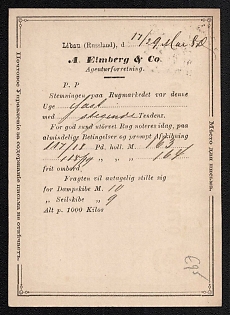 Libau (Russland), d 17/29 Mai 80
A. Etmberg & Co.
Agenturforretning.
P. P.
Stemningen paa Rugmarkedet var denne
Uge fast
med stigende Tendens.
For god sund större Rug noteres idag, paa
almindelige Betingelser og prompt Afskibning
117/18 Pd. holl. M. 163
118/19 „ „ „ 164
frit ombord
Fragten vil antagelig stille sig
for Dampskibe M. 10
„ Seilskibe „ 9
Alt p. 1000 Kilos
Почтовое Управленіе за содержаніе письма не отвѣчаетъ.
Мѣсто для письма.